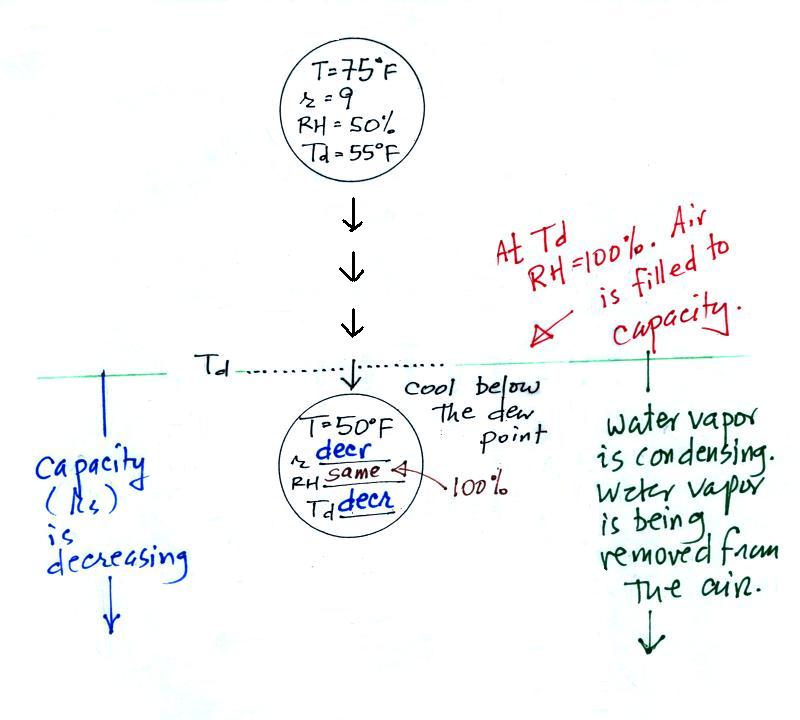 T=75°F
r = 9
RH = 50%
Td = 55°F
At Td
RH=100%. Air
is filled to
capacity.
Td
cool below
the dew
point
T=50°F
r decr
RH same
Td decr
100%
Capacity
(rs)
is
decreasing
Water vapor
is condensing.
Water vapor
is being
removed from
the air.